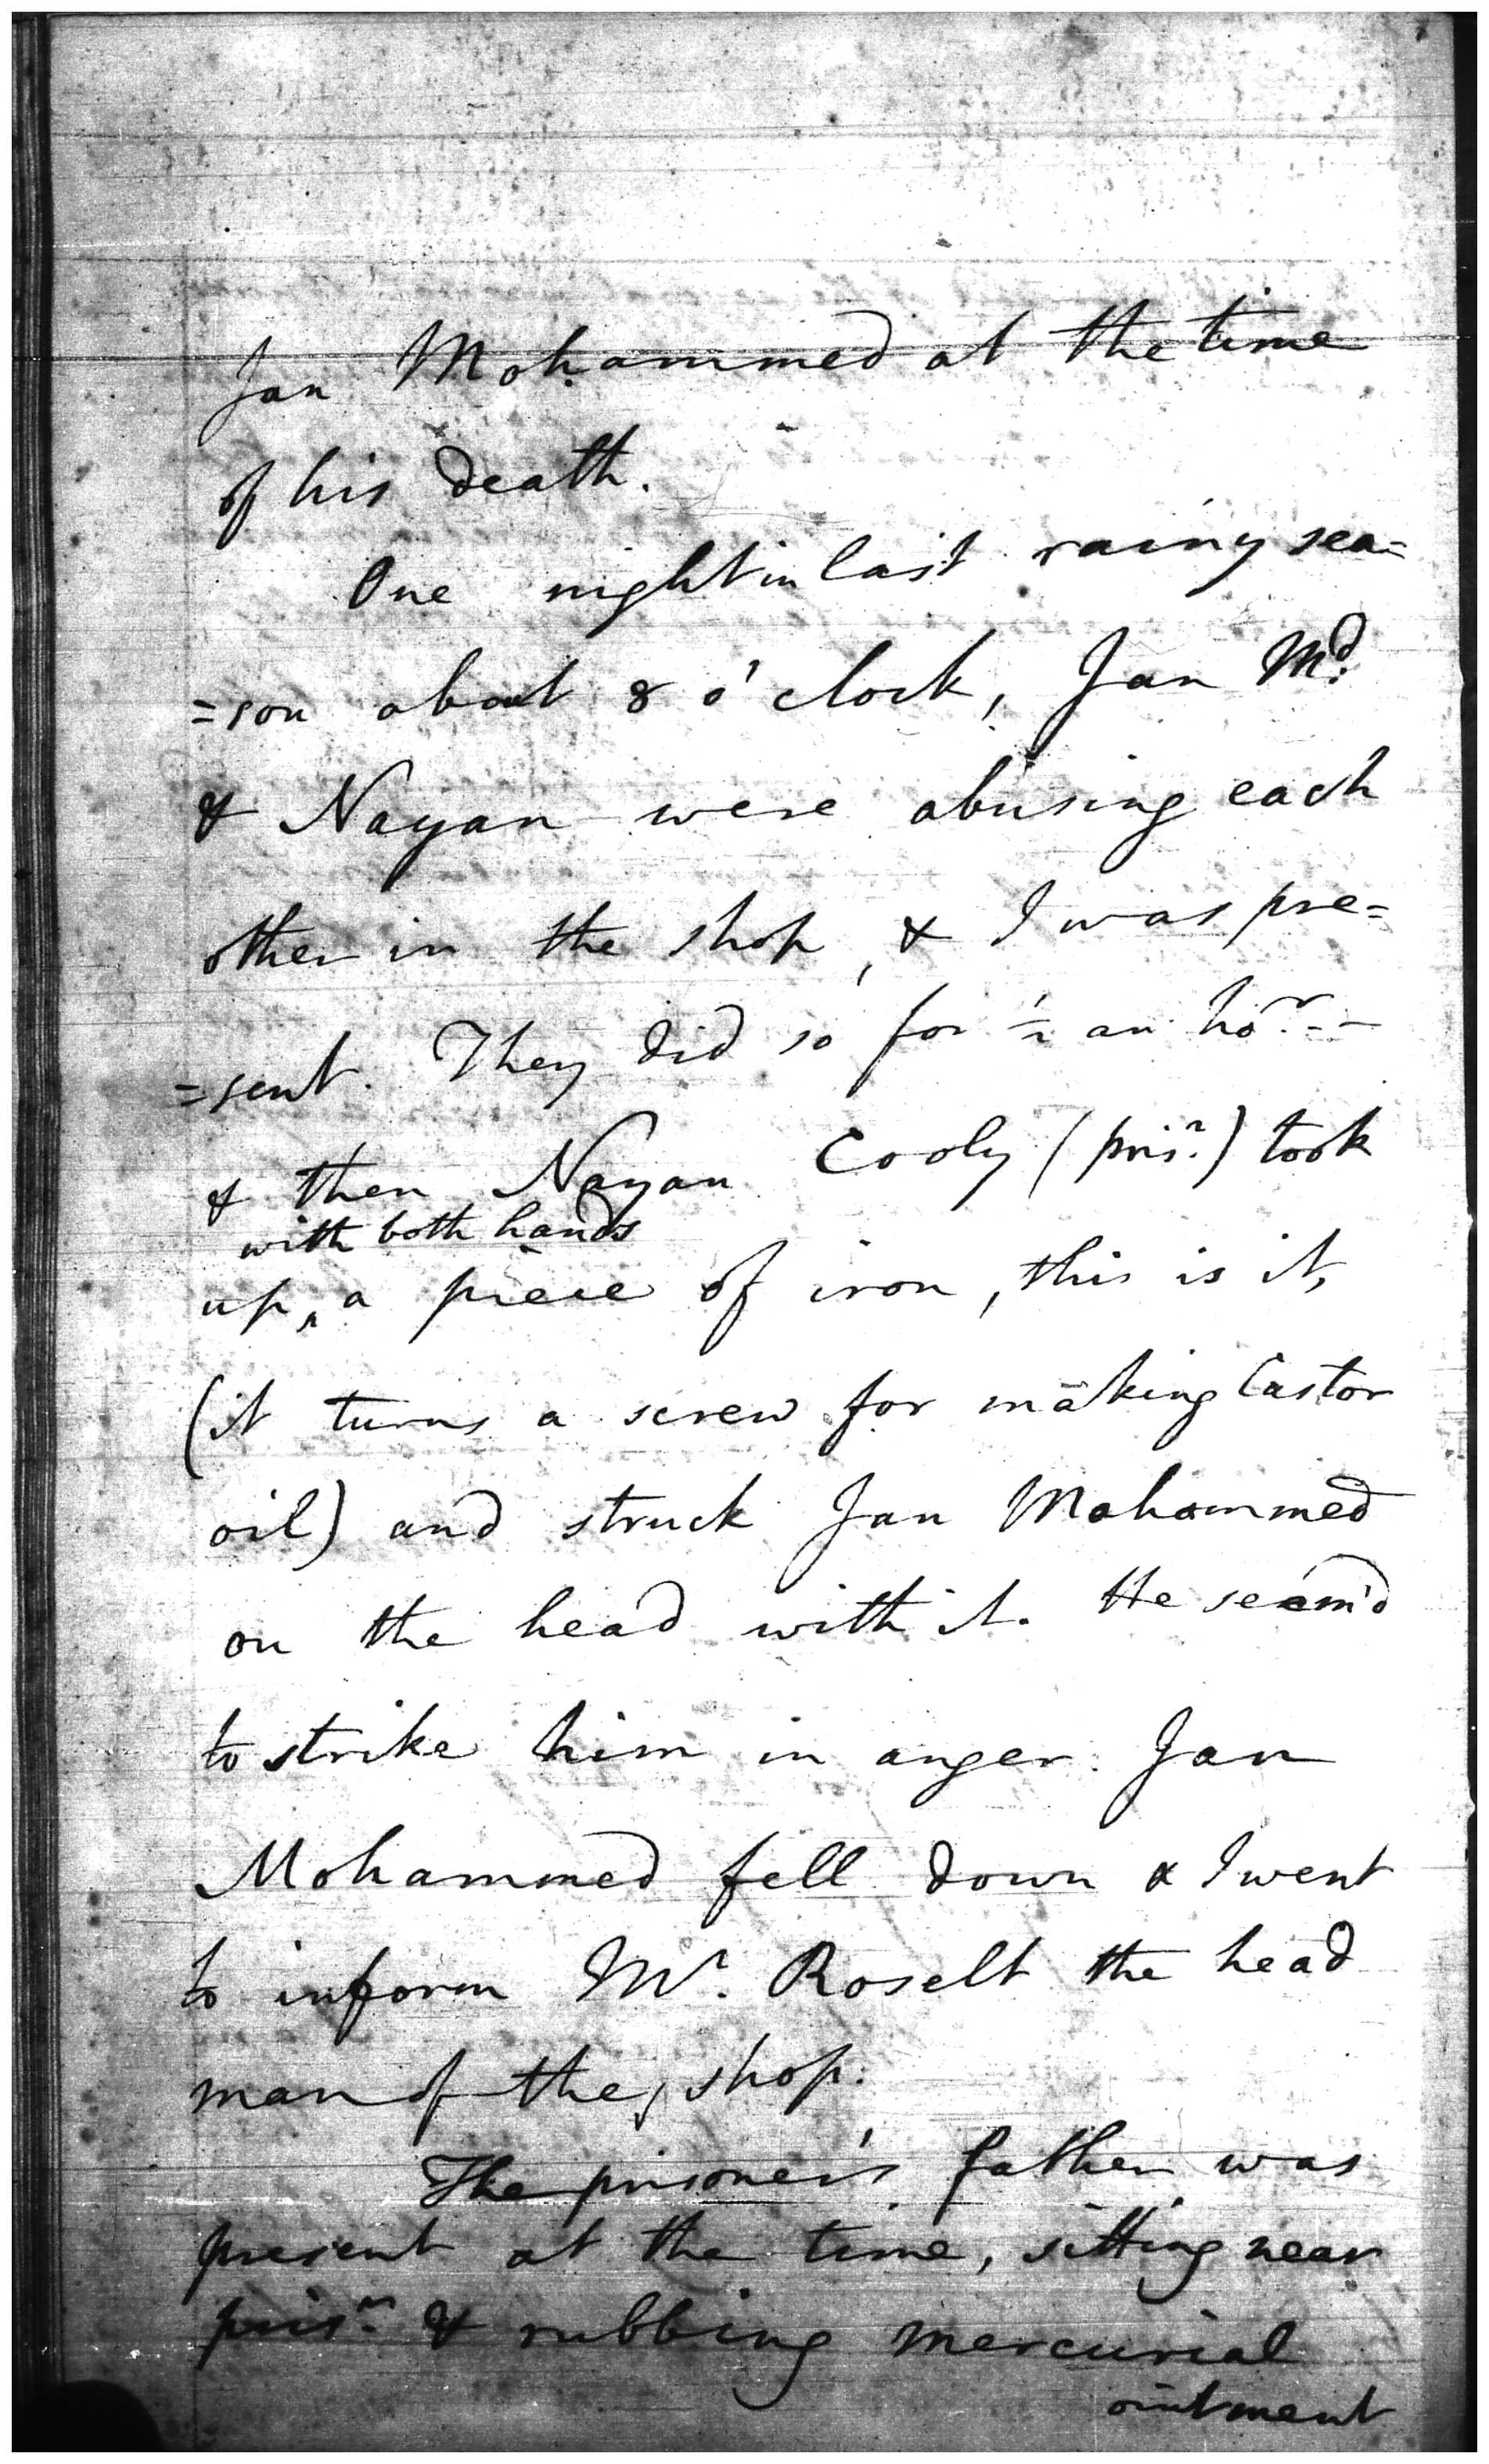 Jan Mohammed at the time
of his death.
One night in last rainy sea=
=son about 8 o'clock, Jan Md.
& Nayan were abusing each
other in the shop, & I was pre=
=sent. They did so for ½ an hor. - -
& then Nayan Cooly (prisr.) took
with both hands
up, a piece of iron, this is it,
(it turns a screw for making Castor
oil) and struck Jan Mohammed
on the head with it. He seem'd
to strike him in anger. Jan
Mohammed fell down & I went
to inform Mr. Roselt the head
man of the shop.
The prisoner's father was
present at the time, sitting near
prisr. & rubbing mercurial
ointment